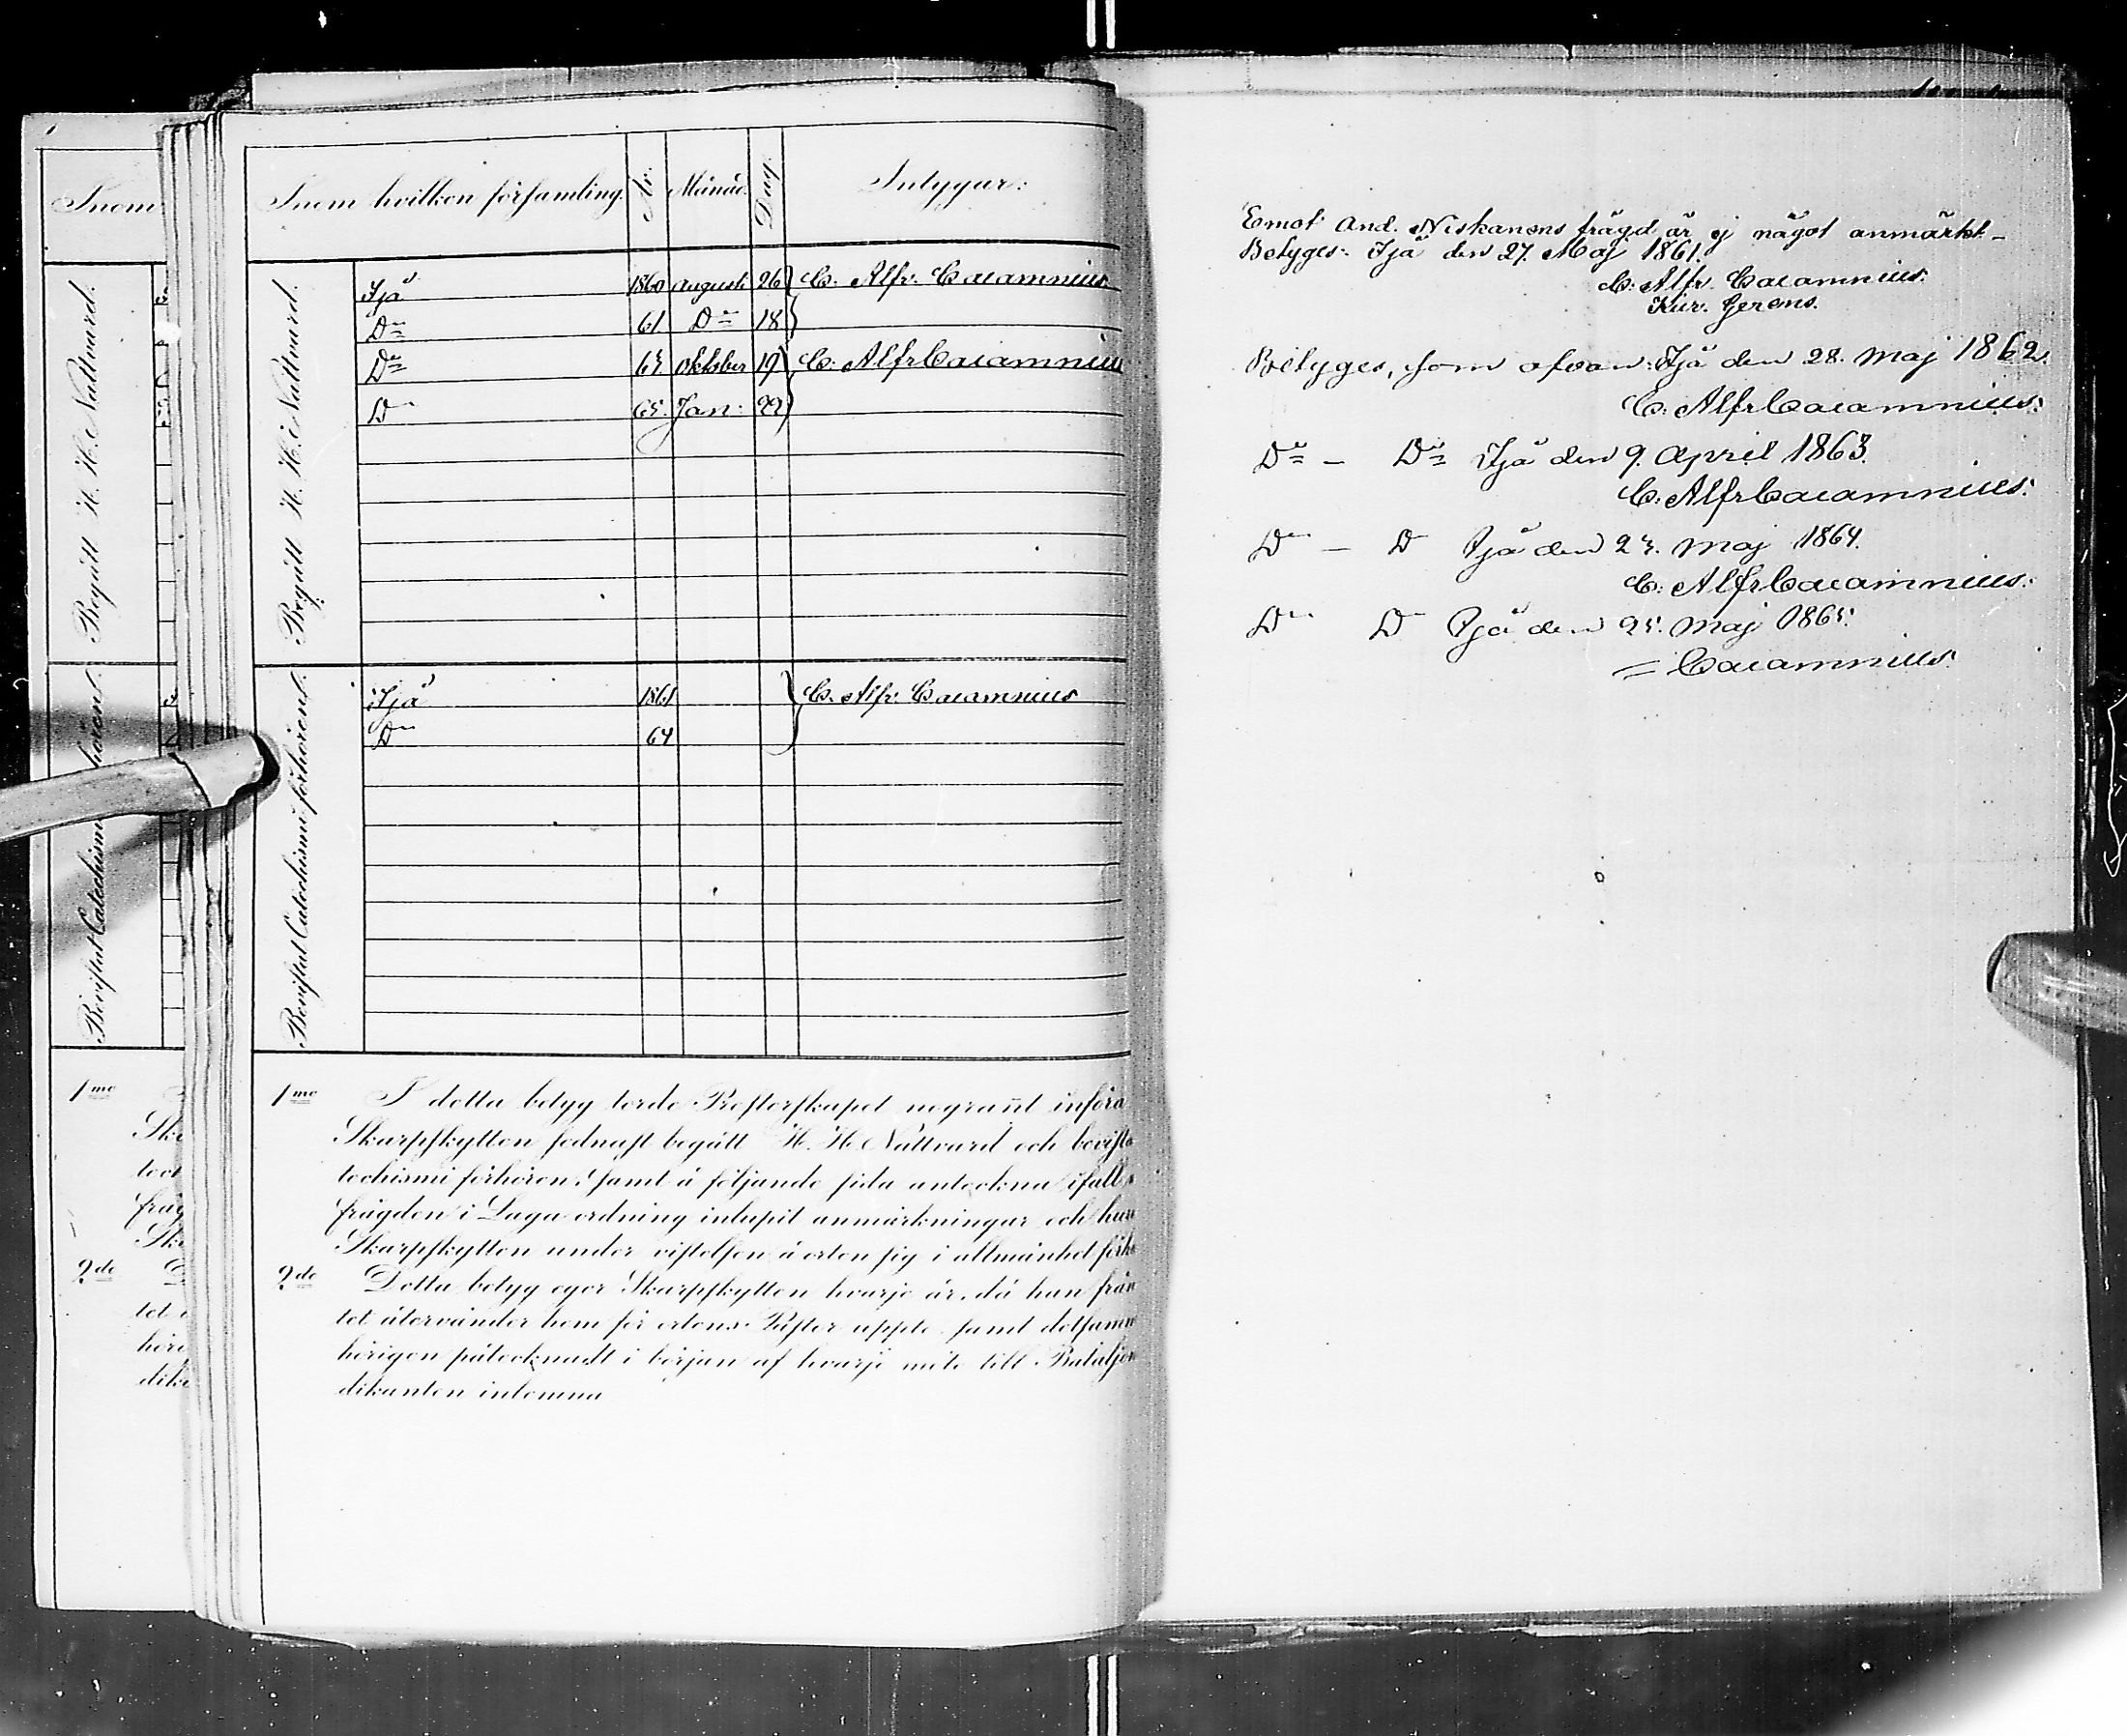 Inom
Begått H. H. Nattvard.
Bevistat Catechismi
1me
Ske
fråg
2de
tet
dika
Inom hvilken församling. År. Månad. Dag. Intygar:
Begått H. H. Nattvard.
Ijå 1860 Augusti 26 C. Alfr: Cacamnius
Do 61 Do 18
Do 63 Oktober 19 C: Alfr Cacamnius
Do 65. Jan: 22
Bevistat Catechismi förhören.
Ijå 1861 C. Alfr: Cacamnius
Do 64
1me I detta betyg torde Presterskapet nogrant införa
Skarpskytten sednast begått H. H. Nattvard och bevista
techismi förhören; samt å följande sida anteckna ifall
frägden i Laga ordning inlupit anmärkningar och huru
Skarpskytten under vistelsen å orten sig i allmänhet förh
2de Detta betyg eger Skarpskytten hvarje år, då han från
tet återvänder hem för ortens Pastor uppte samt detsamm
hörigen påtecknadt i början af hvarje möte till Bataljon
dikanten inlemna
Emot And. Niskanens frägd är ej något anmärkt_
Betyges: Ijå den 27. Maj 1861.
C: Alfr. Cacamnius.
Kür. Gerens.
Betyges, som ofvan: Ijå den 28. Maj 1862.
C: Alfr Cacamnius:
Do – Do Ijå den 9. April 1863.
C: Alfr Cacamnius:
Do – D Ijå den 23. Maj 1864.
C: Alfr Cacamnius:
Do D Ijå den 25. Maj 1865.
= Cacamnius.